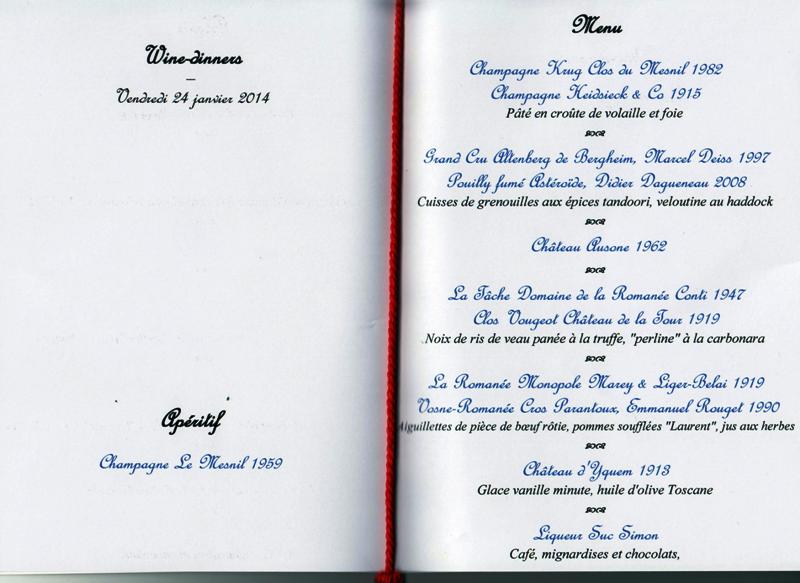 Wine-dinners
–
Vendredi 24 janvier 2014
Apéritif
Champagne Le Mesnil 1959
Menu
Champagne Krug Clos du Mesnil 1982
Champagne Heidsieck & Co 1915
Pâté en croûte de volaille et foie
Grand Cru Altenberg de Bergheim, Marcel Deiss 1997
Pouilly fumé Astéroïde, Didier Dagueneau 2008
Cuisses de grenouilles aux épices tandoori, veloutine au haddock
Château Ausone 1962
La Tâche Domaine de la Romanée Conti 1947
Clos Vougeot Château de la Tour 1919
Noix de ris de veau panée à la truffe, "perline" à la carbonara
La Romanée Monopole Marey & Liger-Belai 1919
Vosne-Romanée Cros Parantoux, Emmanuel Rouget 1990
Aiguillettes de pièce de bœuf rôtie, pommes soufflées "Laurent", jus aux herbes
Château d'Yquem 1913
Glace vanille minute, huile d'olive Toscane
Liqueur Suc Simon
Café, mignardises et chocolats,